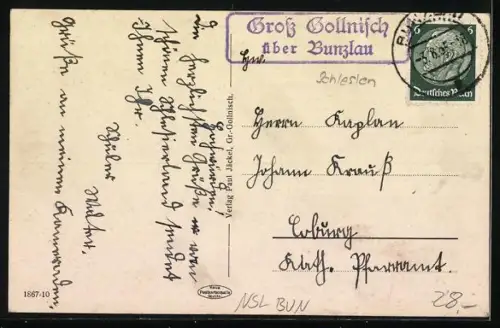 Groß Gollnisch
über Bunzlau
BUNZLAU
6 6
Deutsches Reich
Hw.
Schlesien
Herrn Kaplan
Johann Krauß
Coburg
Kath. Pfarramt.
Hochwürden!
Die herzlichsten Grüße aus
schönen Schlesierland sendet
Ihnen Ihr
Walter.
Grüße an meinen Kameraden.
Verlag Paul Jäckel, Gr.-Gollnisch.
1867-10
NSL BUN
28,-